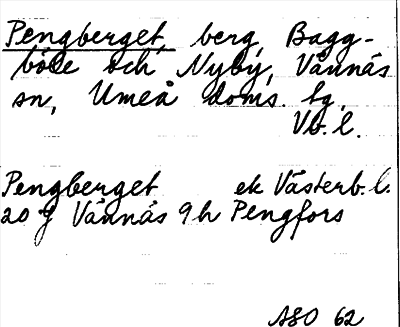 Pengberget, berg, Bagg-
böle och Nyby, Vännäs
sn, Umeå doms. lg,
Vb. l.
Pengberget ek Västerb. l.
20 J Vännäs 9h Pengfors
ASO 62